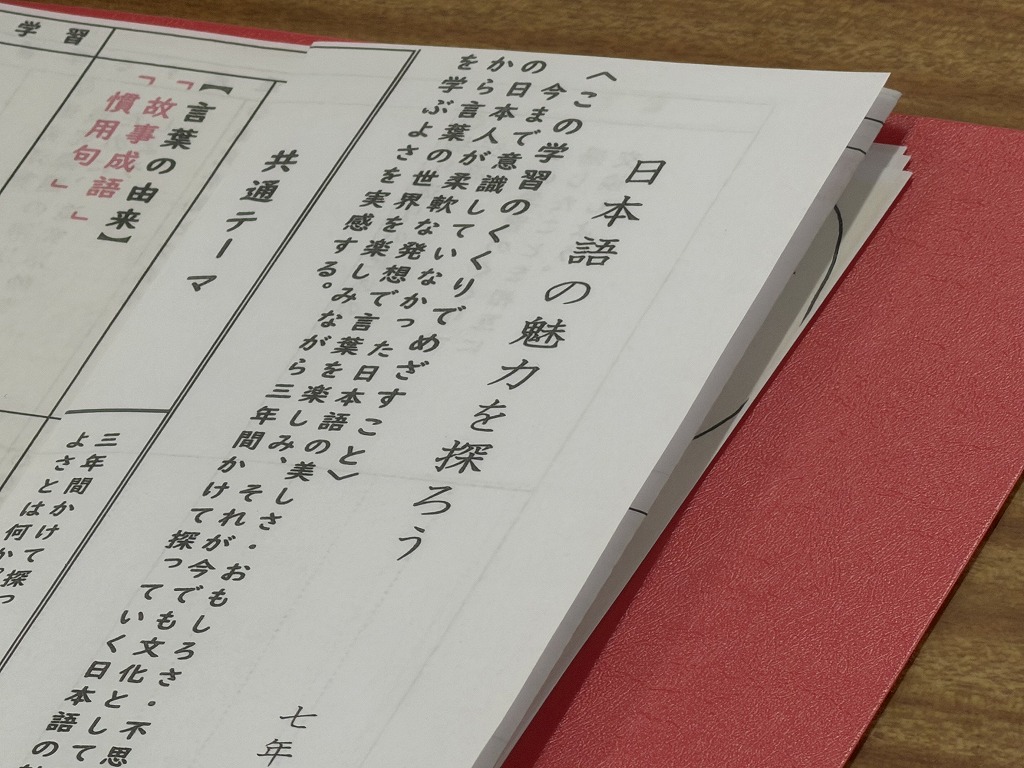 日本語の魅力を探ろう
七年
〈この学習のくくりでめざすこと〉
今まで意識していなかった日本語の美しさ・おもしろさ・不思
の日本人が柔軟な発想で言葉を楽しみ、それが今でも文化として
から言葉の世界を楽しみながら三年間かけて探っていく日本語の
を学ぶよさを実感する。
共通テーマ
三年間かけて探っ
よさとは何か
学習
【言葉の由来】
「故事成語」
「慣用句」